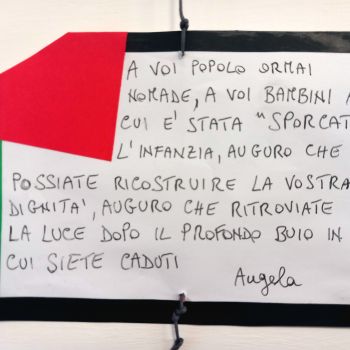 A VOI POPOLO ORMAI
NOMADE, A VOI BAMBINI A
CUI E' STATA "SPORCAT
L'INFANZIA, AUGURO CHE
POSSIATE RICOSTRUIRE LA VOSTRA
DIGNITA', AUGURO CHE RITROVIATE
LA LUCE DOPO IL PROFONDO BUIO IN
CUI SIETE CADUTI
Angela